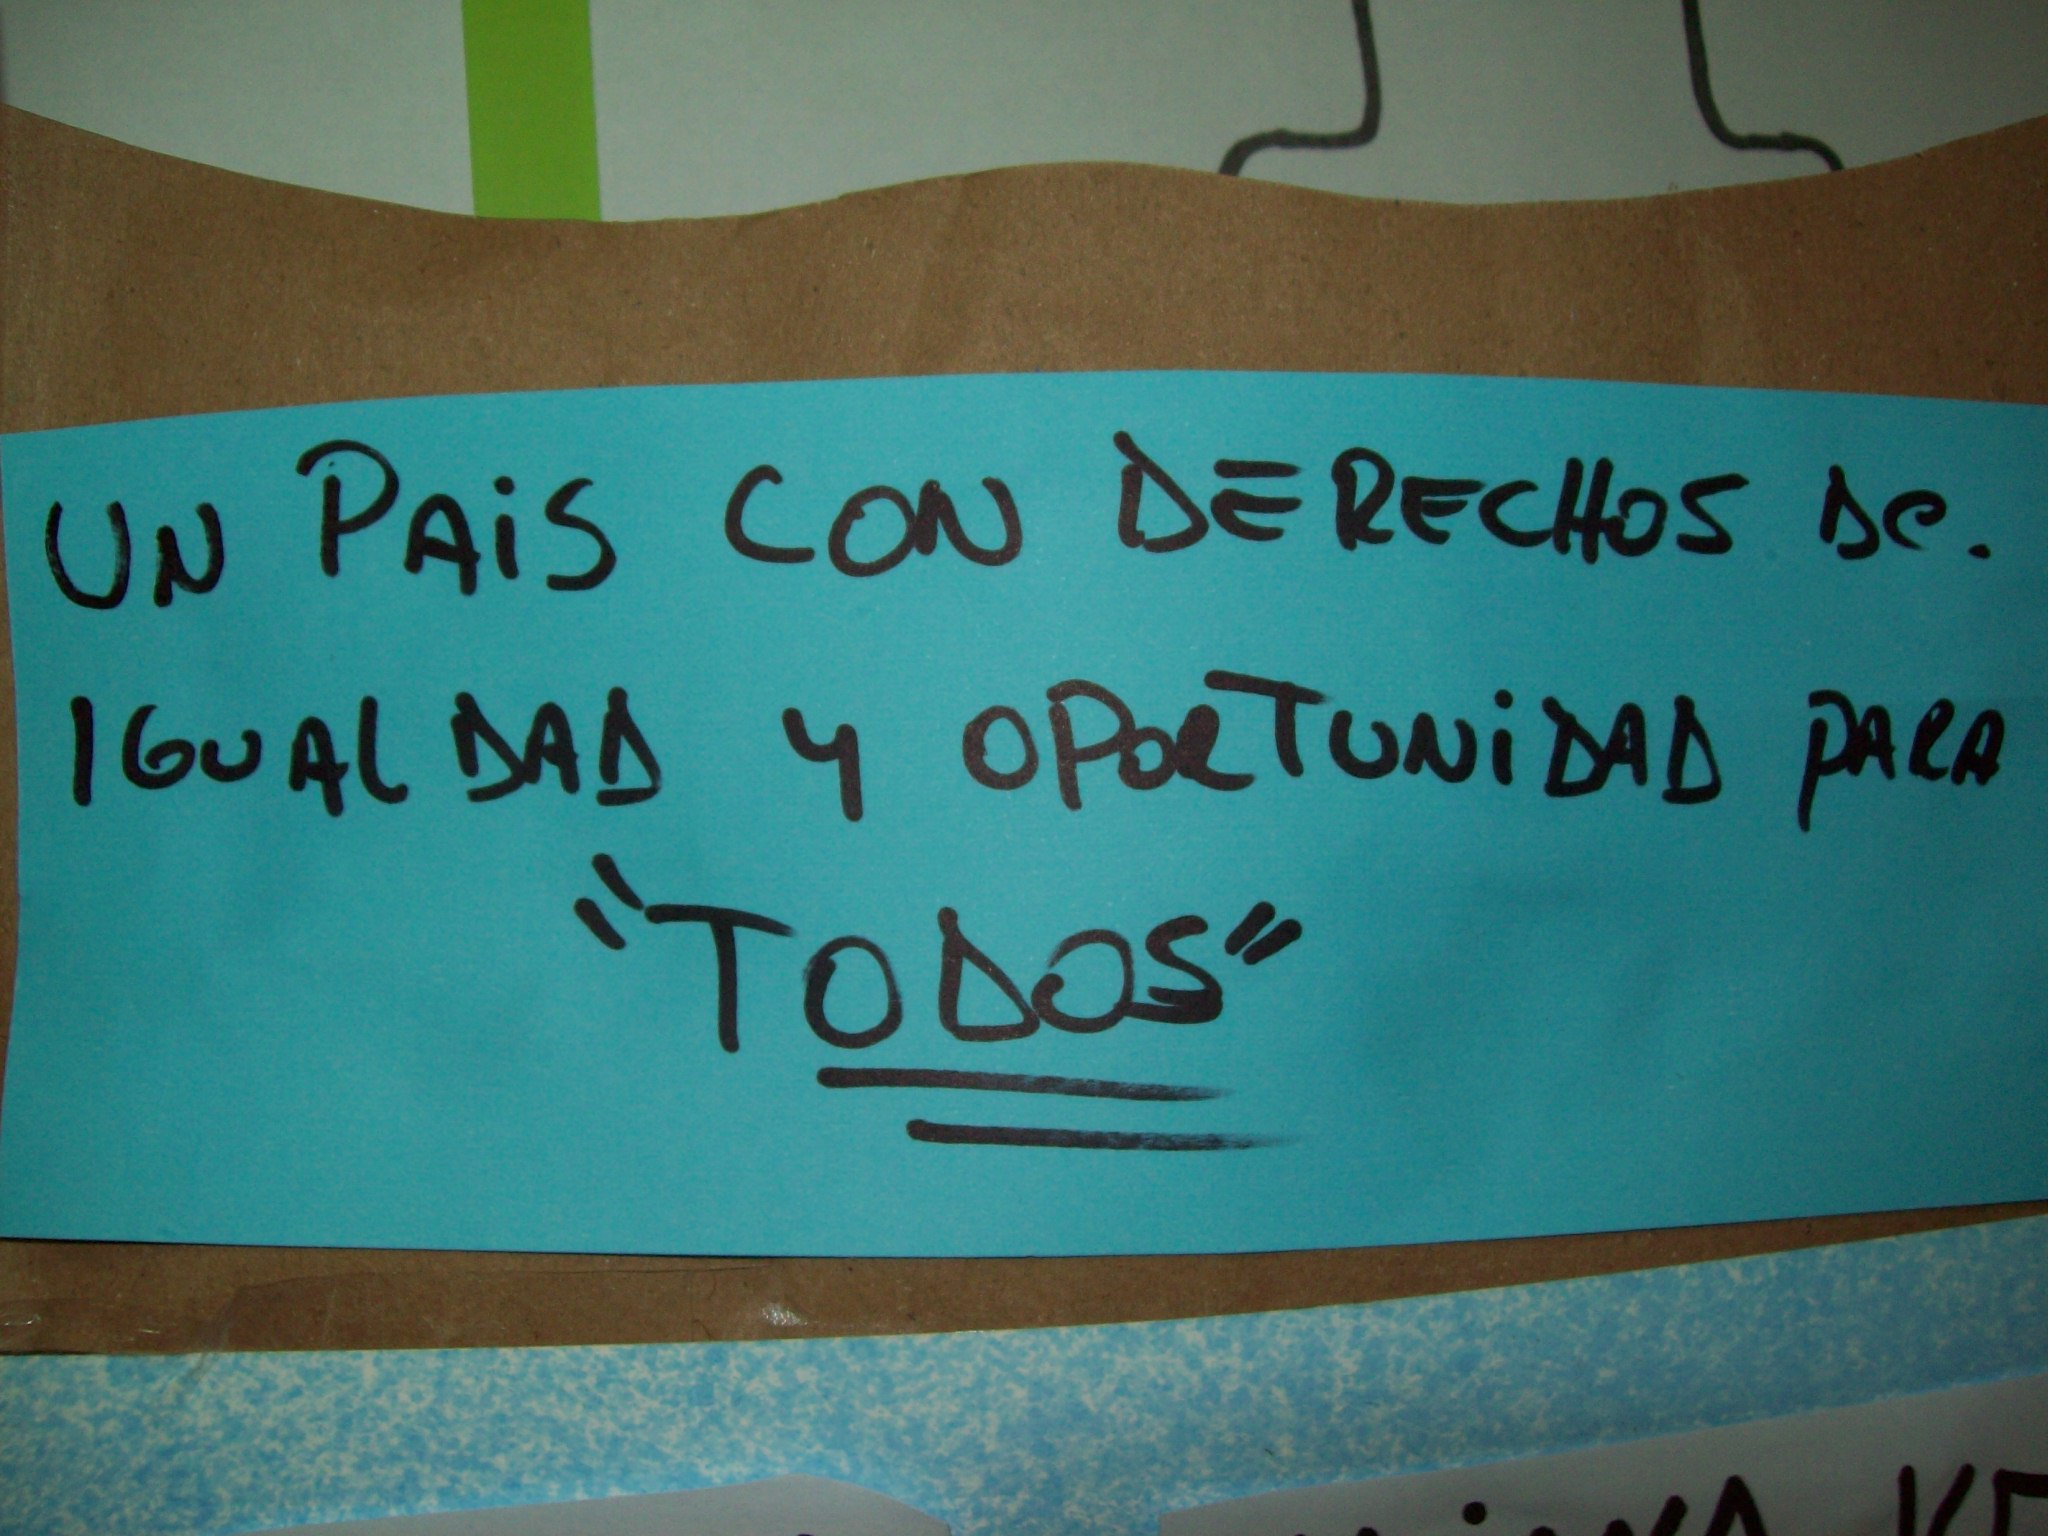 UN PAIS CON DERECHOS DE.
IGUALDAD Y OPORTUNIDAD PARA
"TODOS"